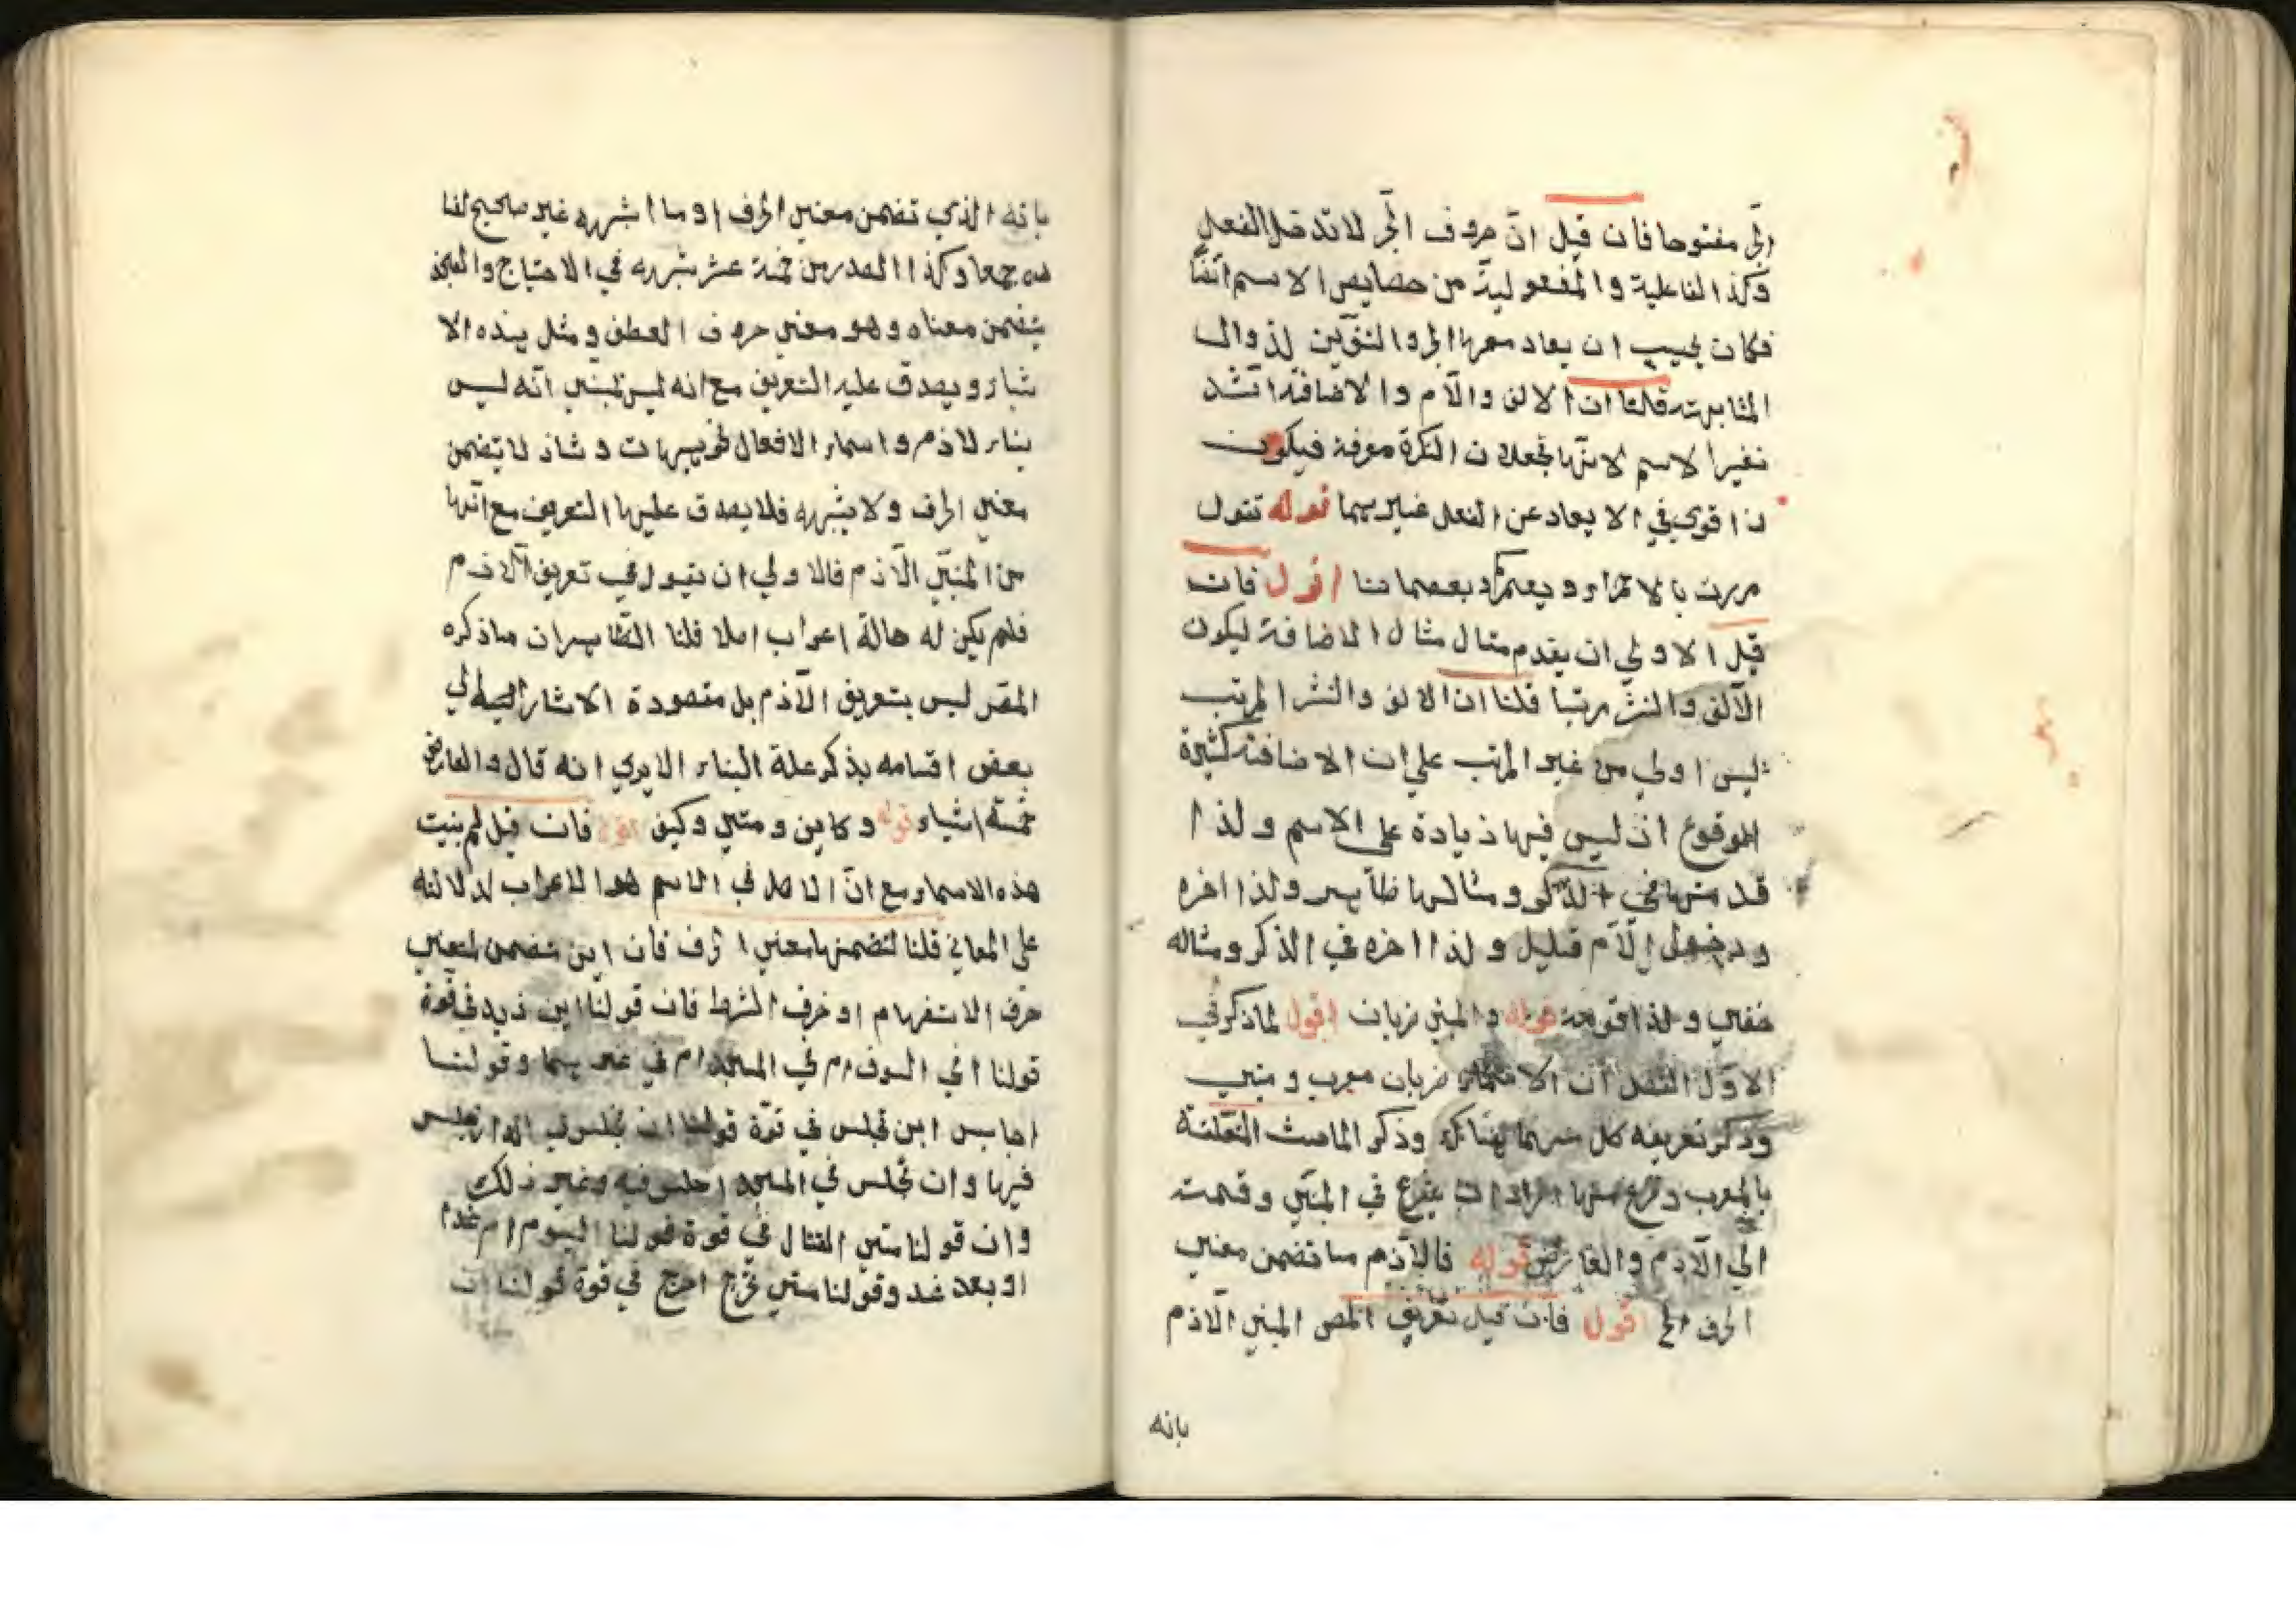 الجر مفتوحا فان قيل انّ حروف الجر لا تدخل الفعل
وكذا الفاعلية والمفعولية من خصايص الاسم ايضا
فكان يجب ان يعاد معها الجر والتنوين لزوال
المشابهة قلنا ان الالف والام والاضافة اشد
تغيرا لاسم لانها تجعلان النكرة معرفة فيكون
ذا قوى في الا يعاد عن الفعل غيرهما قوله تقول
مررت بالاحمراء وبعمركم وبعصماننا اقول فان
قيل الاولي ان يقدم مثال مثال الاضافة ليكون
الآلف والنشر مرتبا قلنا ان الالف والنشر المرتب
ليس اولي من غير المرتب علي ان الاضافة كثيرة
الموقوع اذ ليس فيها زيادة على الاسم ولذا
قد منها في الذكر ومثالها ظاهر ولذا اخره
ودخول الآم قليل ولذا اخره في الذكر ومثاله
خفي ولذا قوله والمبني ضربان اقول لما ذكر في
الاول الفصل ان الاسماء ضربان معرب ومبني
وذكر تعريفه كل منهما هناك وذكر المباحث المتعلقة
بالمعرب وفرع منها اراد ان يفرع في المبني وقسمت
الي الآزم والعارض قوله فالآزم ما تضمن معني
الحرف الخ اقول فان قيل تعريف المص المبني الآزم
بانه
بانه الذي تضمن معني الحرف او ما اشبهه غير صحيح لفا
ده جمعا وكذا المصدر من خمسة عشر شبهه في الاحتياج والعجز
يتضمن معناه وهو معني حروف العطف ومثل هذه الا
شياء ويصدق عليه التعريف مع انه ليس لمبني انه ليس
بناء لازم واسماء الافعال نحو هيهات وشاذ لا يتضمن
معني الحرف ولا يشبهه فلا يصدق عليها التعريف مع انها
من المبني الآزم فالاولي ان يقول في تعريف الآزم
فلم يكن له حالة اعراب اصلا قلنا الظاهر ان ما ذكره
المص ليس بتعريف الآزم بل مقصودة الاشارة الي
بعض اقسامه بذكر علة البناء الا يري انه قال والعارض
خمسة اشياء قوله وكاين ومتي وكيف اقول فان قيل لم بنيت
هذه الاسماء مع انّ الاصل في الاسم هو الاعراب لدلالته
على المعاني قلنا لتضمنها معني الحرف فان اين متضمن لمعني
حرف الاستفهام او حرف الشرط فان قولنا اين زيد في قوة
قولنا افي السوق ام في المسجد ام في غيرهما وقولنا
اجالس اين تجلس في قوة قولنا ان تجلس في الدار اجلس
فيها وان تجلس في المسجد اجلس فيه وغير ذلك
وان قولنا متي القتال في قوة قولنا اليوم ام غدا
او بعد غد وقولنا متي تخرج اخرج في قوة قولنا ان